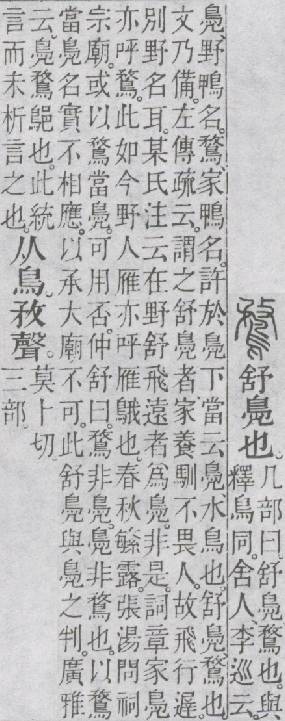 鶩 舒鳧也。几部曰舒鳧鶩也。與
釋鳥同。舍人、李巡云
鳧野鴨名。鶩家鴨名。許於鳧下當云鳧水鳥也。舒鳧鶩也
文乃備。左傳疏云。謂之舒鳧者家養馴不畏人。故飛行遲。
別野名耳。某氏注云在野舒飛遠者爲鳧。非是。詞章家鳧
亦呼鶩。此如今野人雁亦呼雁鵝也。春秋緐露。張湯問祠
宗廟。或以鶩當鳧。可用否。仲舒曰。鶩非鳧。鳧非鶩也。以鶩
當鳧名實不相應。以承大廟不可。此舒鳧與鳧之判。廣雅
云。鳧鶩鴄也。此統
言而未析言之也。
从鳥。敄聲。莫卜切。
三部。